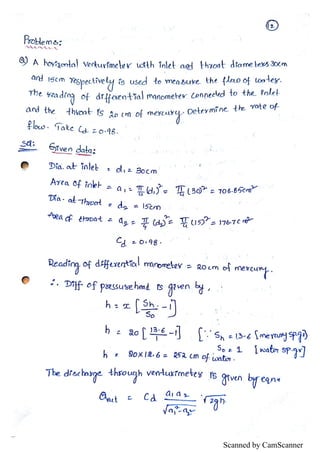 2
Problems:
Q) A horizontal venturimeter with inlet and throat diameters 30cm
and 15cm respectively is used to measure the flow of water.
The reading of differential manometer connected to the inlet
and the throat is 20 cm of mercury. Determine the rate of
flow. Take Cd = 0.98.
Sol: Given data:
Dia. at inlet = d₁ = 30cm
Area of inlet = a₁ = π/4 (d₁)² = π/4 (30)² = 706.85cm²
Dia. at Throat = d₂ = 15cm
Area of throat = a₂ = π/4 (d₂)² = π/4 (15)² = 176.7cm²
Cd = 0.98.
Reading of differential manometer = 20cm of mercury.
∴ Diff. of pressure head is given by,
h = x [Sh/So - 1]
h = 20 [13.6/1 - 1] [∵ Sh = 13.6 [mercury sp.gr]
So = 1 [water sp.gr]
h = 20×12.6 = 252 cm of water.
The discharge through venturimeter is given by eqn
Qact = Cd a₁a₂/√a₁²-a₂² · √2gh
Scanned by CamScanner